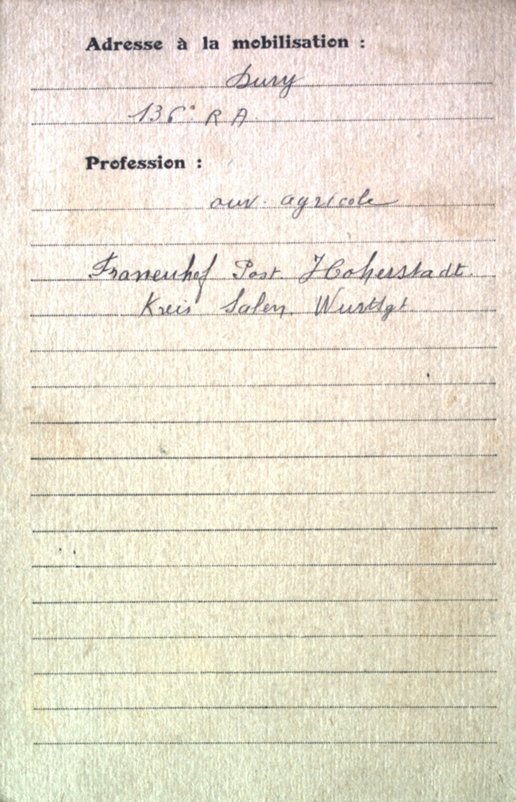 Adresse à la mobilisation :
Dury
136e R A
Profession :
ouv. agricole
Franenhof Post Hoherstadt.
Kreis Salen, Wurttgt